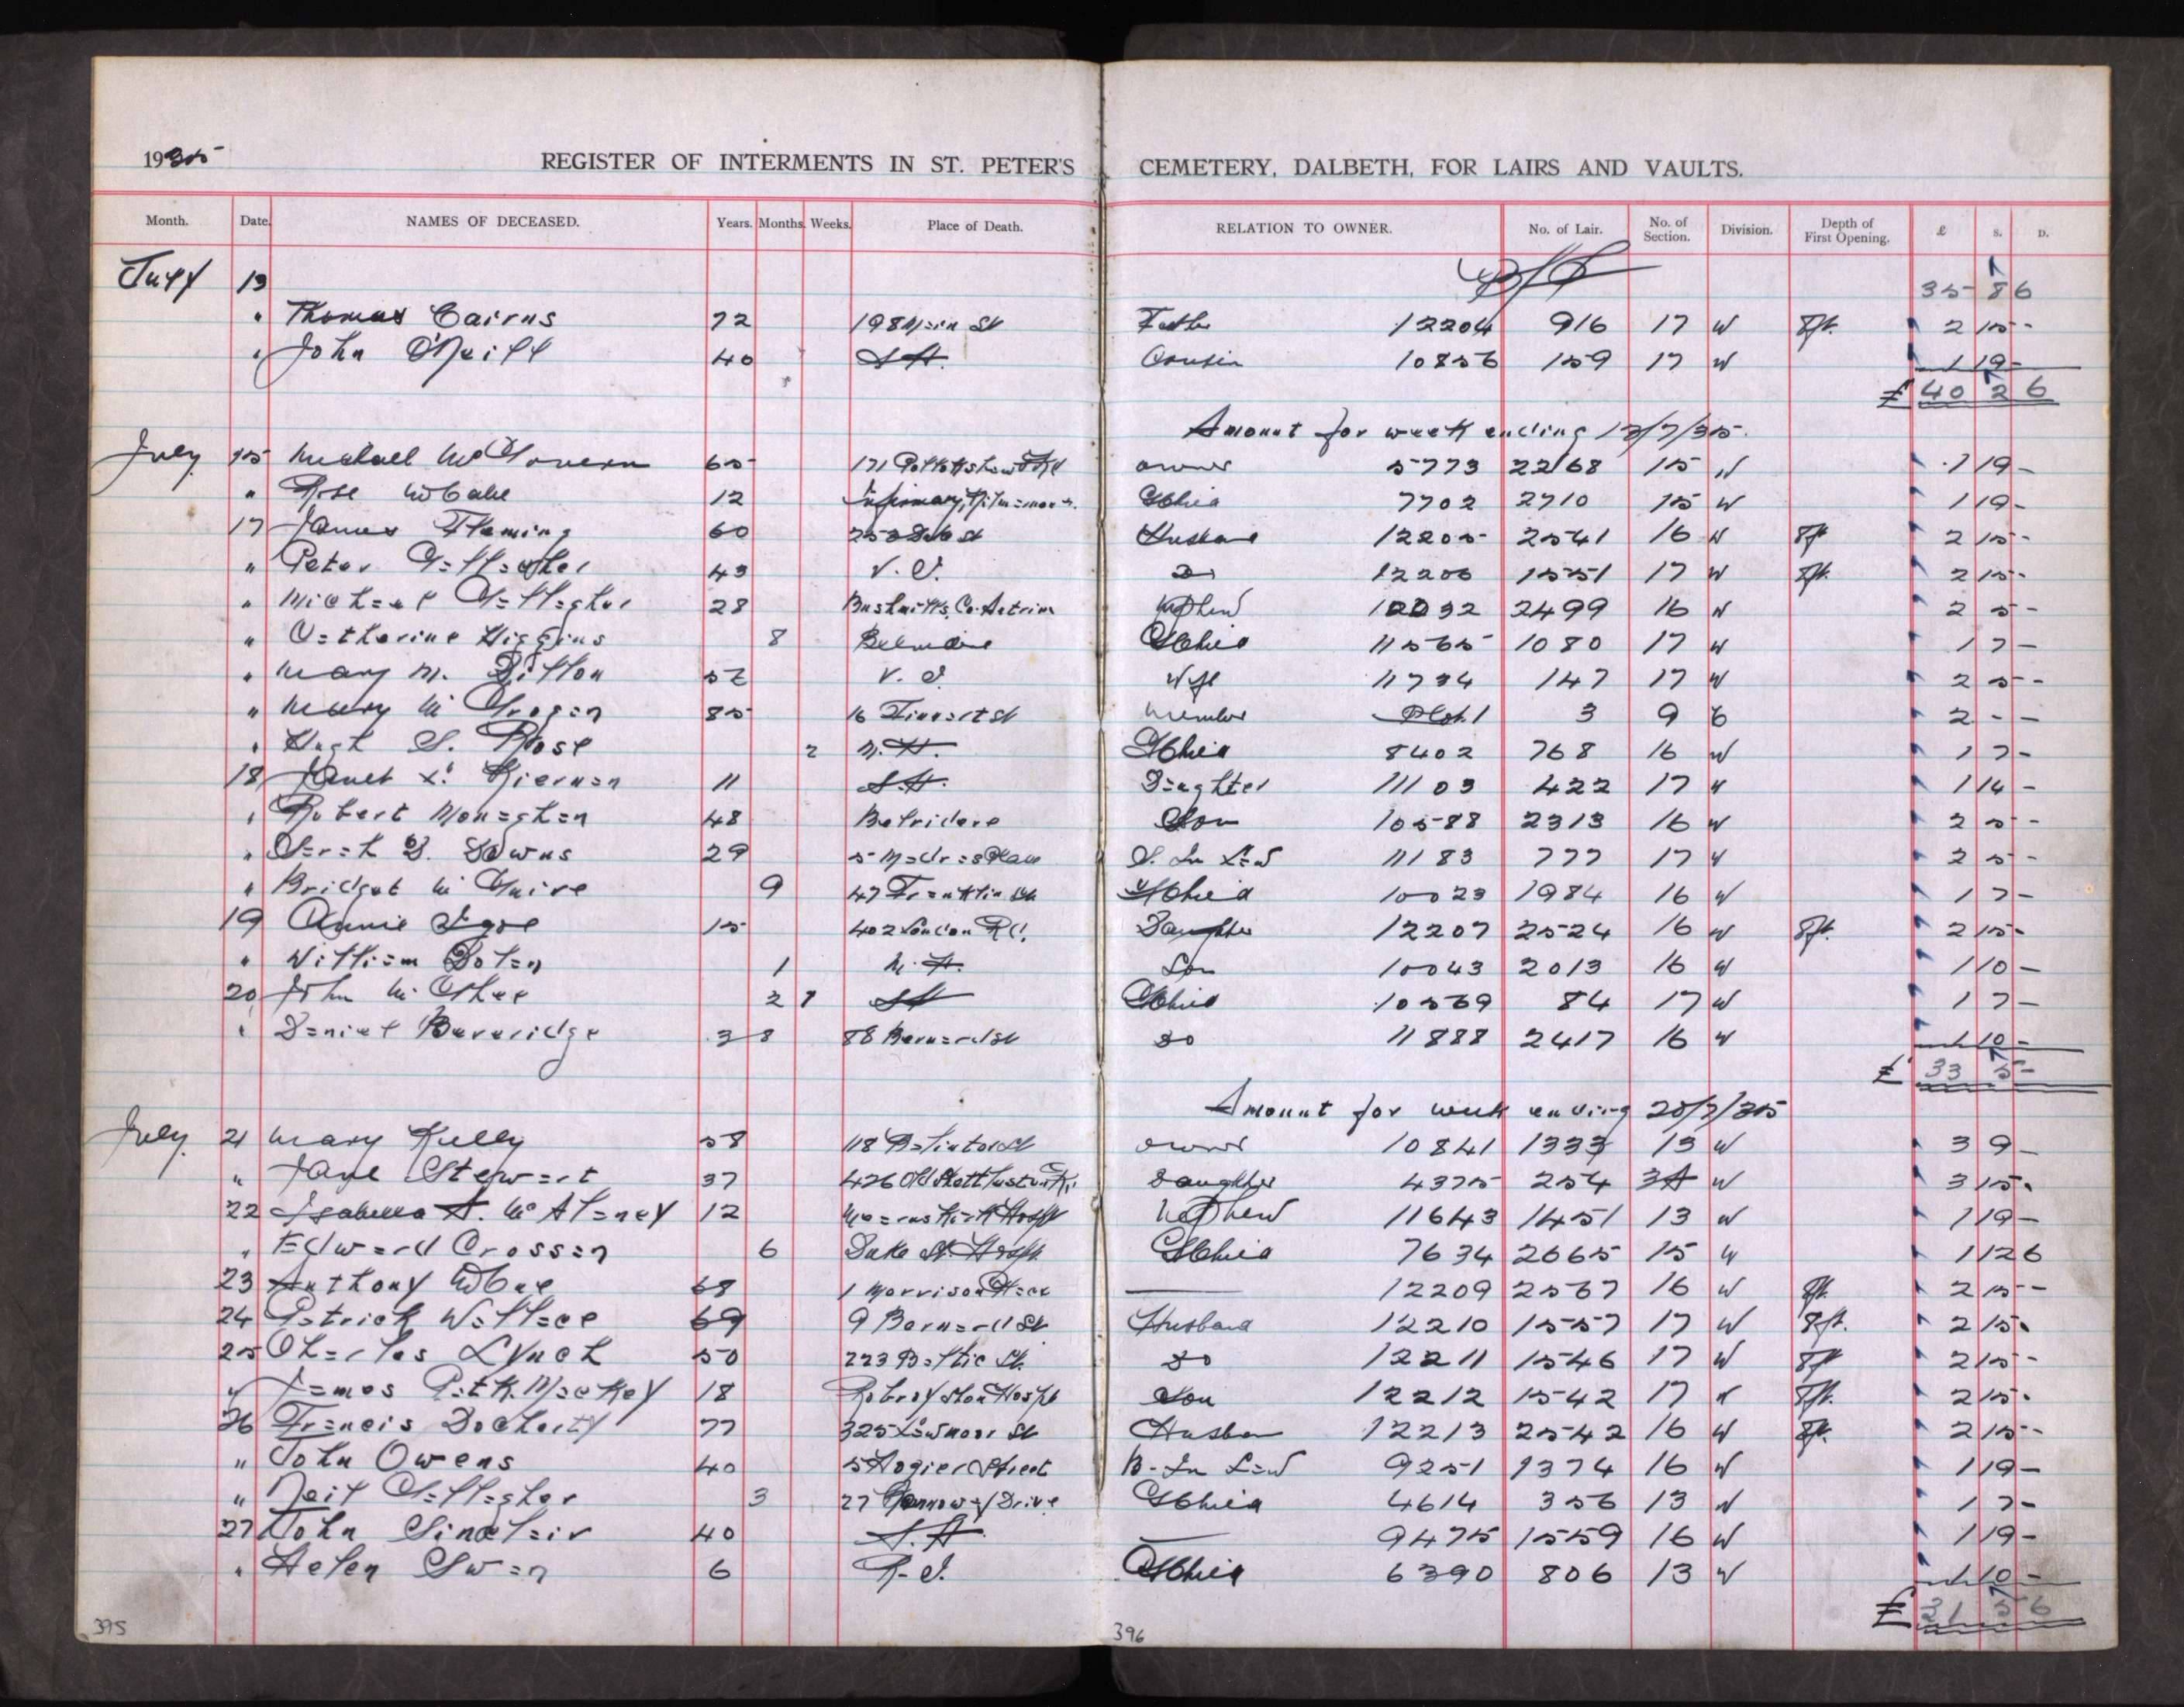 1935
REGISTER OF INTERMENTS IN ST. PETER'S CEMETERY, DALBETH, FOR LAIRS AND VAULTS.
Month. Date. NAMES OF DECEASED. Years. Months. Weeks. Place of Death. RELATION TO OWNER. No. of Lair. No. of Section. Division. Depth of First Opening. £ S. D.
July 13 35 8 6
" Thomas Cairns 72 198 Main St Father 12204 916 17 W 8ft. 2 15 -
" John O'Neill 40 S.H. Cousin 10856 159 17 W 1 19 -
£ 40 2 6
Amount for week ending 13/7/35.
July 15 Michael McGovern 65 171 owner 5773 2268 15 W 1 19 -
" Rose McCabe 12 Infirmary, Kilmarnock. Child 7702 2710 15 W 1 19 -
17 James Fleming 60 Husband 12205 2541 16 W 8ft 2 15 -
" Peter Gallagher 43 V.I. Do 12206 1551 17 W 8ft. 2 15 -
" Michael Gallagher 28 Bushmills, Co. Antrim Nephew 2499 16 W 2 5 -
" Catherine Higgins 8 Belvidere Child 11565 1080 17 W 1 7 -
" Mary M. Dillon 52 V.I. Wife 11734 147 17 W 2 5 -
" Mary Mc Grogan 85 16 Tinnart St Member Plot. 1 3 9 2 - -
" Hugh S. Rose 2 M.H. Child 8402 768 16 W 1 7 -
18 Janet L. Kiernan 11 S.H. Daughter 11103 422 17 W 1 14 -
" Robert Monaghan 48 Belvidere Son 10588 2313 16 W 2 5 -
" Sarah D. Downs 29 5 Madras Place S. In Law 11183 777 17 W 2 5 -
" Bridget Mc Guire 9 47 Franklin St Child 10023 1984 16 W 1 7 -
19 Annie Igoe 15 402 London Rd. Daughter 12207 2524 16 W 8ft. 2 15 -
" William Dolan 1 M.H. Son 10043 2013 16 W 1 10 -
20 John Mc Ghee 2 1 S.H. Child 10569 84 17 W 1 7 -
" Daniel Beveridge 3 8 88 Bernard St Do 11888 2417 16 W 1 10 -
£ 33 5 -
Amount for week ending 20/7/35
July 21 Mary Kelly 58 118 Baliol St owner 10841 1333 13 W 3 9 -
" Jane Stewart 37 426 Old Shettleston Rd. Daughter 4375 254 3A W 3 15 -
22 Isabella A. McAtaney 12 Mearnskirk Hospt Nephew 11643 1451 13 W 1 19 -
" Edward Crossan 6 Duke St. Hospt. Child 7634 2665 15 W 1 12 6
23 Anthony McCue 68 1 Morrison 12209 2567 16 W 8ft. 2 15 -
24 Patrick Wallace 69 9 Bernard St Husband 12210 1557 17 W 8ft. 2 15 -
25 Charles Lynch 50 223 Baltic St. Do 12211 1546 17 W 8ft 2 15 -
" James Patk. Mackey 18 Robroyston Hospt Son 12212 1542 17 W 8ft. 2 15 -
26 Francis Docherty 77 325 Lawmoor St Husban 12213 2542 16 W 8ft. 2 15 -
" John Owens 40 5 Hogier Street B. In Law 9251 1374 16 W 1 19 -
" Neil Gallagher 3 27 Drive Child 4614 356 13 W 1 7 -
27 John Sinclair 40 S.H. 9475 1559 16 W 1 19 -
" Helen Swan 6 R.I. Child 6390 806 13 W 1 10 -
£ 31 5 6
395 396